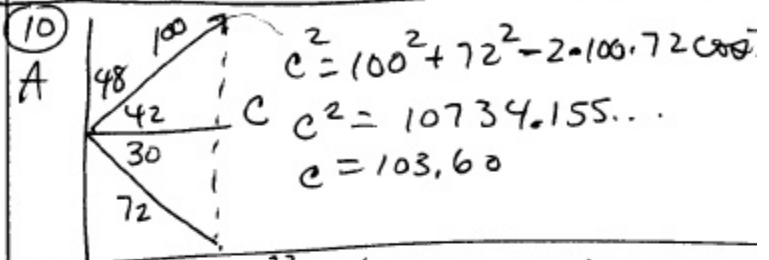 10
A
100
48
42
30
72
C
c²=100²+72²-2·100·72 cos
c²= 10734.155...
c = 103.60